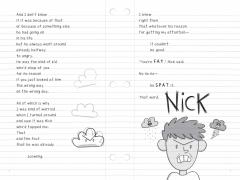 And I don't know
if it was because of that
or because of something else
he had going on
in his life
but he always went around
already halfway
to angry.
He was the kind of kid
who'd snap at you
for no reason
if you just looked at him
the wrong way
on the wrong day.
All of which is why
I was kind of worried
when I turned around
and saw it was Nick
who'd tapped me.
That
and the fact
that he was already
scowling.
I knew
right then
that whatever his reason
for getting my attention—
it couldn't
be good.
"You're FAT," Nick said.
No no no—
he SPAT it.
That word.
NICK